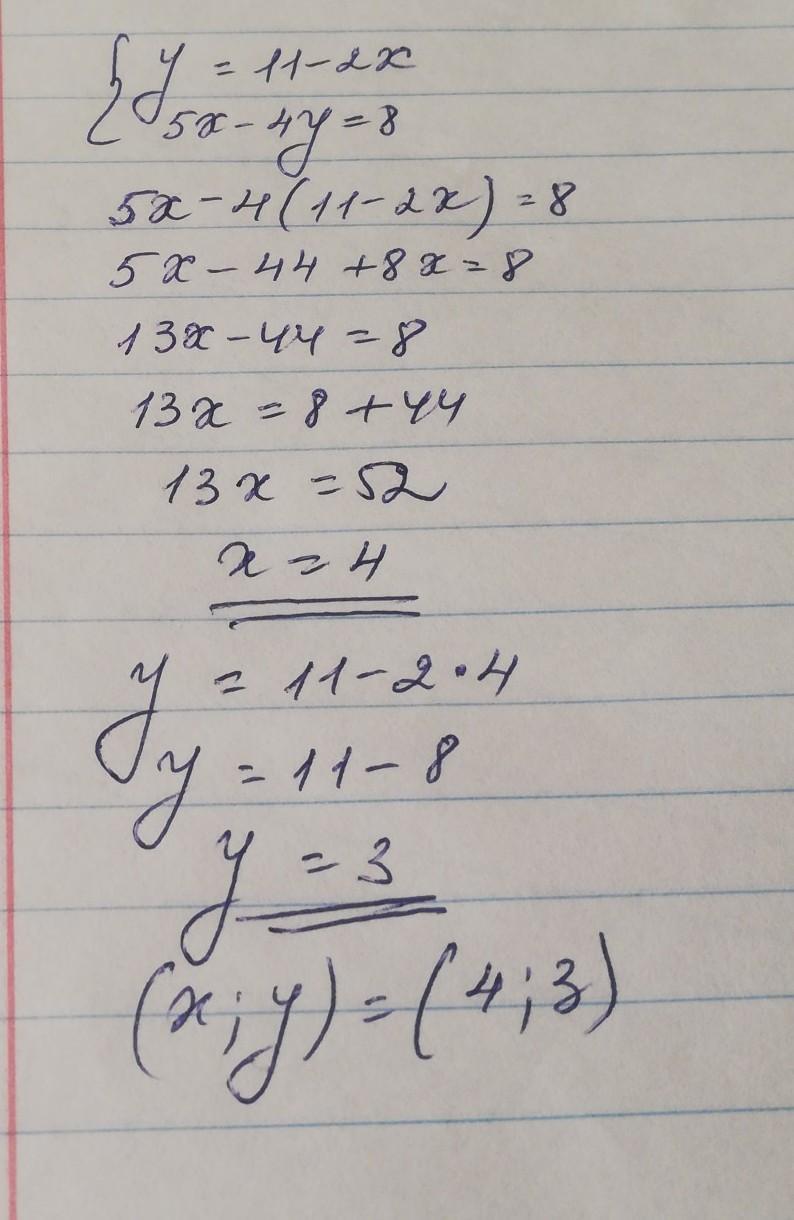 { y = 11-2x
5x-4y=8
5x-4(11-2x)=8
5x-44+8x=8
13x-44=8
13x=8+44
13x=52
x=4
y=11-2·4
y=11-8
y=3
(x;y)=(4;3)